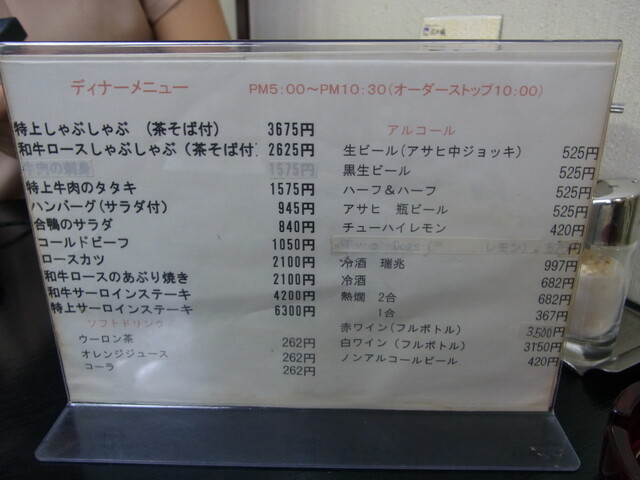 ディナーメニュー PM5:00〜PM10:30(オーダーストップ10:00)
特上しゃぶしゃぶ (茶そば付) 3675円
和牛ロースしゃぶしゃぶ(茶そば付) 2625円
牛肉の刺身 1575円
特上牛肉のタタキ 1575円
ハンバーグ(サラダ付) 945円
合鴨のサラダ 840円
コールドビーフ 1050円
ロースカツ 2100円
和牛ロースのあぶり焼き 2100円
和牛サーロインステーキ 4200円
特上サーロインステーキ 6300円
ソフトドリンク
ウーロン茶 262円
オレンジジュース 262円
コーラ 262円
アルコール
生ビール(アサヒ中ジョッキ) 525円
黒生ビール 525円
ハーフ&ハーフ 525円
アサヒ 瓶ビール 525円
チューハイレモン 420円
レモン) 円
冷酒 瑞兆 997円
冷酒 682円
熱燗 2合 682円
1合 367円
赤ワイン(フルボトル) 3,500円
白ワイン(フルボトル) 3150円
ノンアルコールビール 420円